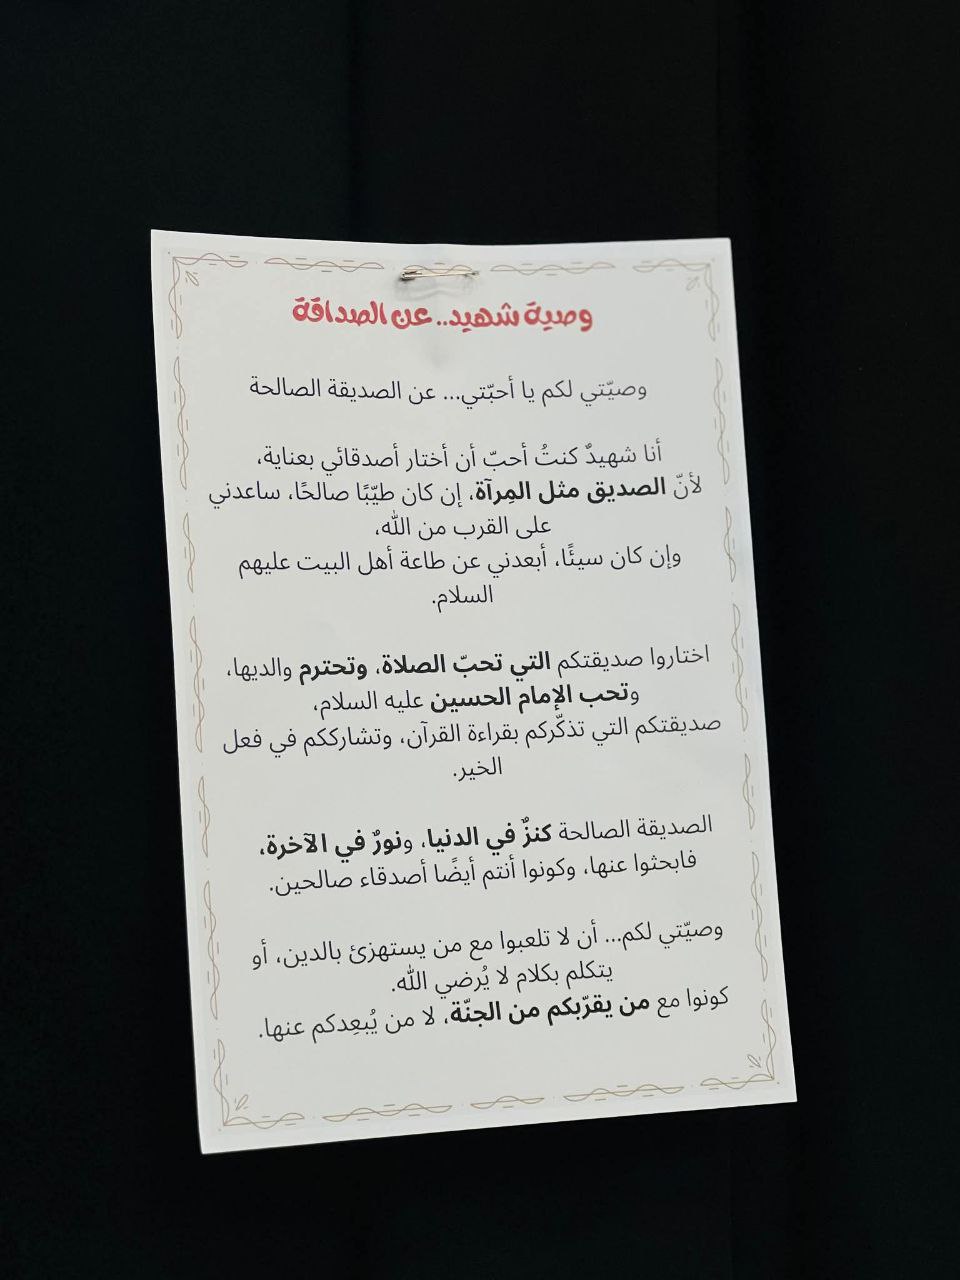 وصية شهيد.. عن الصداقة
وصيّتي لكم يا أحبّتي... عن الصديقة الصالحة
أنا شهيدٌ كنتُ أحبّ أن أختار أصدقائي بعناية،
لأنّ الصديق مثل المِرآة، إن كان طيّبًا صالحًا، ساعدني
على القرب من الله،
وإن كان سيئًا، أبعدني عن طاعة أهل البيت عليهم
السلام.
اختاروا صديقتكم التي تحبّ الصلاة، وتحترم والديها،
وتحب الإمام الحسين عليه السلام،
صديقتكم التي تذكّركم بقراءة القرآن، وتشارككم في فعل
الخير.
الصديقة الصالحة كنزٌ في الدنيا، ونورٌ في الآخرة،
فابحثوا عنها، وكونوا أنتم أيضًا أصدقاء صالحين.
وصيّتي لكم... أن لا تلعبوا مع من يستهزئ بالدين، أو
يتكلم بكلام لا يُرضي الله.
كونوا مع من يقرّبكم من الجنّة، لا من يُبعِدكم عنها.